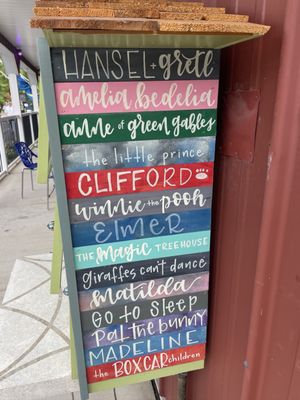 HANSEL + gretl
amelia bedelia
anne of green gables
the little prince
CLIFFORD
winnie the pooh
ELMER
THE MAGIC TREEHOUSE
giraffes can't dance
Matilda
GO to SLEEP
PAL the BUNNY
MADELINE
the BOXCAR children